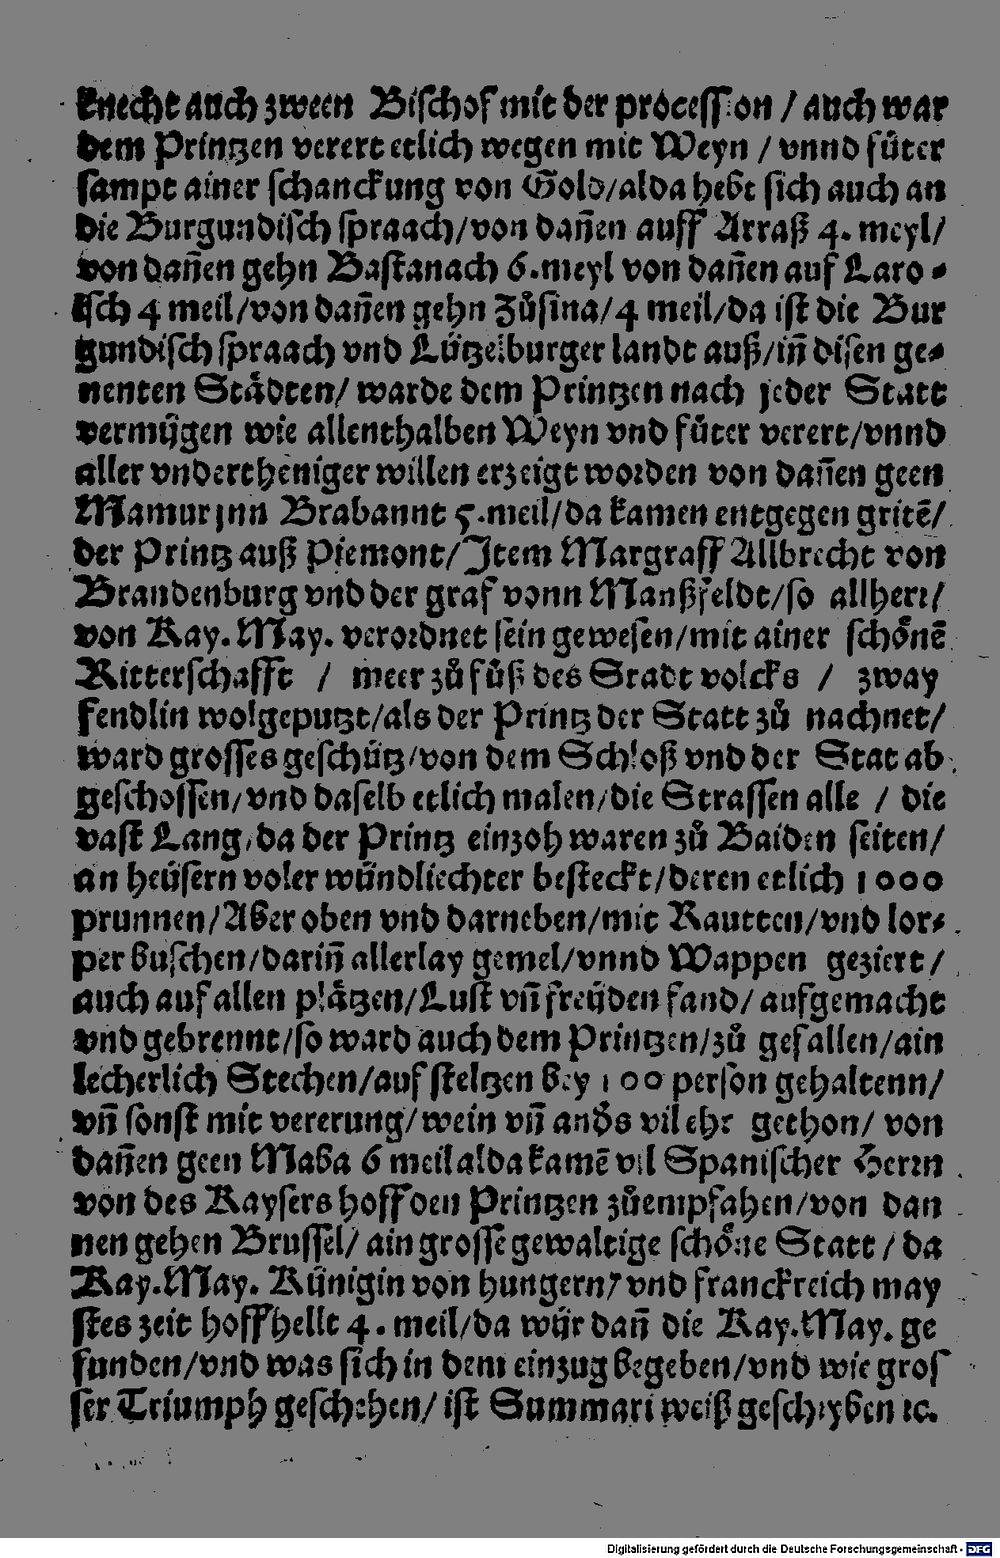 knecht auch zween Bischof mit der procession / auch war
dem Printzen verert etlich wegen mit Weyn / vnnd fůter
sampt ainer schanckung von Gold/alda hebt sich auch an
die Burgundisch spraach/von dañen auff Arraß 4. meyl/
von dañen gehn Bastanach 6.meyl von dañen auf Laro⸗
isch 4 meil/von dañen gehn Zůsina/4 meil/da ist die Bur
gundisch spraach vnd Lützelburger landt auß/iñ disen ge⸗
nenten Städten/ warde dem Printzen nach jeder Statt
vermügen wie allenthalben Weyn vnd fůter verert/vnnd
aller vndertheniger willen erzeigt worden von dañen geen
Mamur jnn Brabannt 5.meil/da kamen entgegen gritē/
der Printz auß Piemont/Jtem Margraff Allbrecht von
Brandenburg vnd der graf vonn Manßfeldt/so allherr/
von Kay. May. verordnet sein gewesen/mit ainer schönē
Ritterschafft / meer zů fůß des Stadt volcks / zway
fendlin wolgeputzt/als der Printz der Statt zů nachnet/
ward grosses geschütz/von dem Schloß vnd der Stat ab
geschossen/vnd daselb etlich malen/die Strassen alle / die
vast Lang/da der Printz einzoh waren zů Baiden seiten/
an heüsern voler wündliechter besteckt/deren etlich 1000
prunnen/Aber oben vnd darneben/mit Rautten/vnd lor⸗
per buschen/dariñ allerlay gemel/vnnd Wappen geziert/
auch auf allen plätzen/Lust vñ freüden fand/aufgemacht
vnd gebrennt/so ward auch dem Printzen/zů gefallen/ain
lecherlich Stechen/auf steltzen bey 100 person gehaltenn/
vñ sonst mit vererung/wein vñ anđs vil ehr gethon/ von
dañen geen Maba 6 meil alda kamē vil Spanischer Herrn
von des Kaysers hoff den Printzen zůempfahen/von dan
nen gehen Brussel/ ain grosse gewaltige schöne Statt / da
Kay.May. Künigin von hungern/ vnd franckreich may
stes zeit hoff hellt 4. meil/da wür dañ die Kay.May. ge
funden/vnd was sich in dem einzug begeben/vnd wie gros
ser Triumph geschehen/ ist Summari weiß geschryben ꝛc.
Digitalisierung gefördert durch die Deutsche Forschungsgemeinschaft - DFG